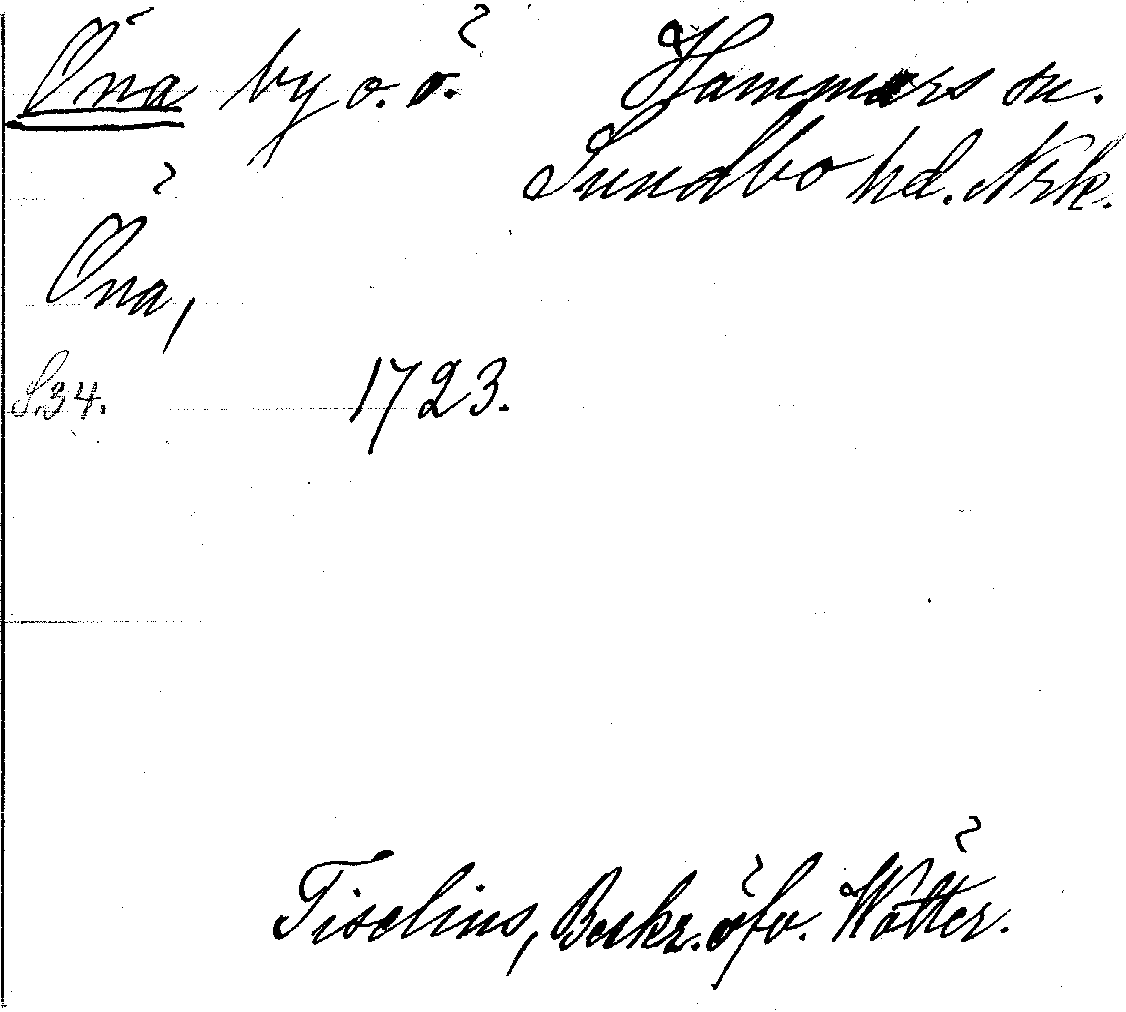 Öna by o. ö. Hammars sn.
Sundbo hd. Nrk.
Öna,
S.34. 1723.
Tiselius, Beskr. öfv. Wätter.